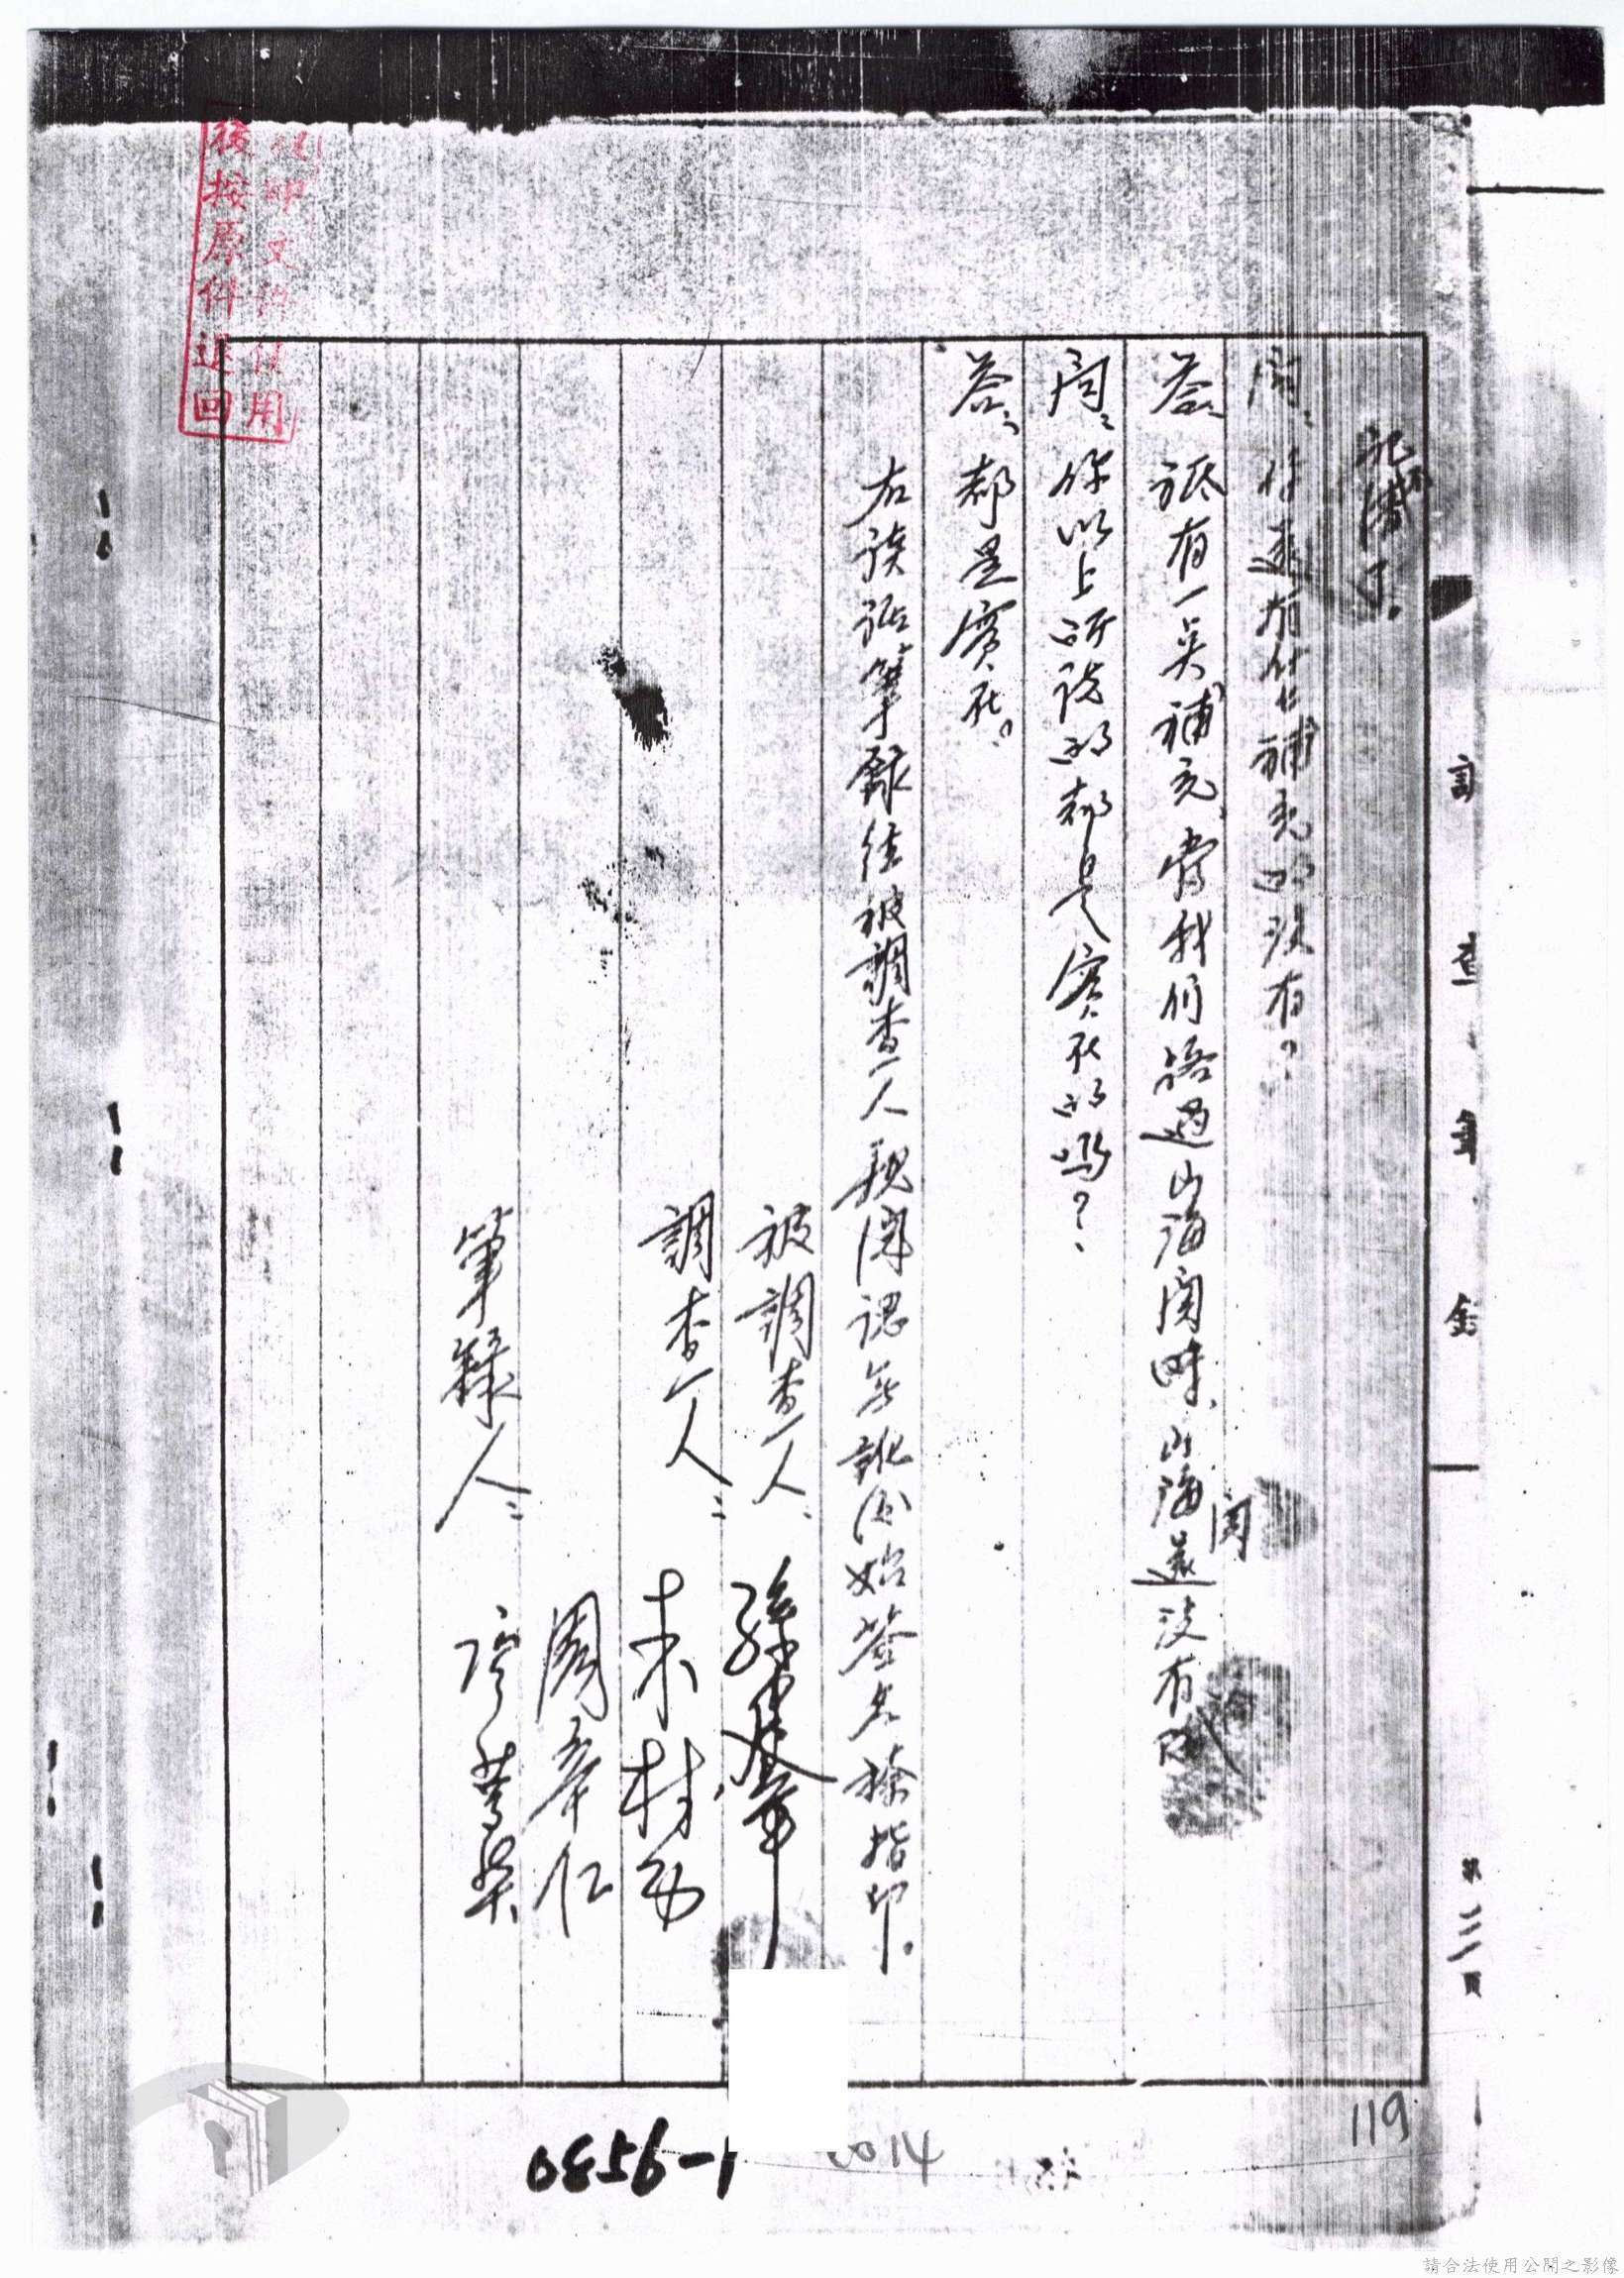 調查筆錄
第三頁
記不清了。
問：你還有什么補充的沒有？
答：祗有一点補充，當我们路过山海関時，山海関還沒有淪
問：你以上所說的都是實在的嗎？
答：都是實在。
右談話筆錄經被調查人親閱認無訛後始簽名捺指印。
被調查人：孫
調查人：朱
周奉仁
筆錄人：
後按原件退回
文件使用
119
0014
0856-1
請合法使用公開之影像